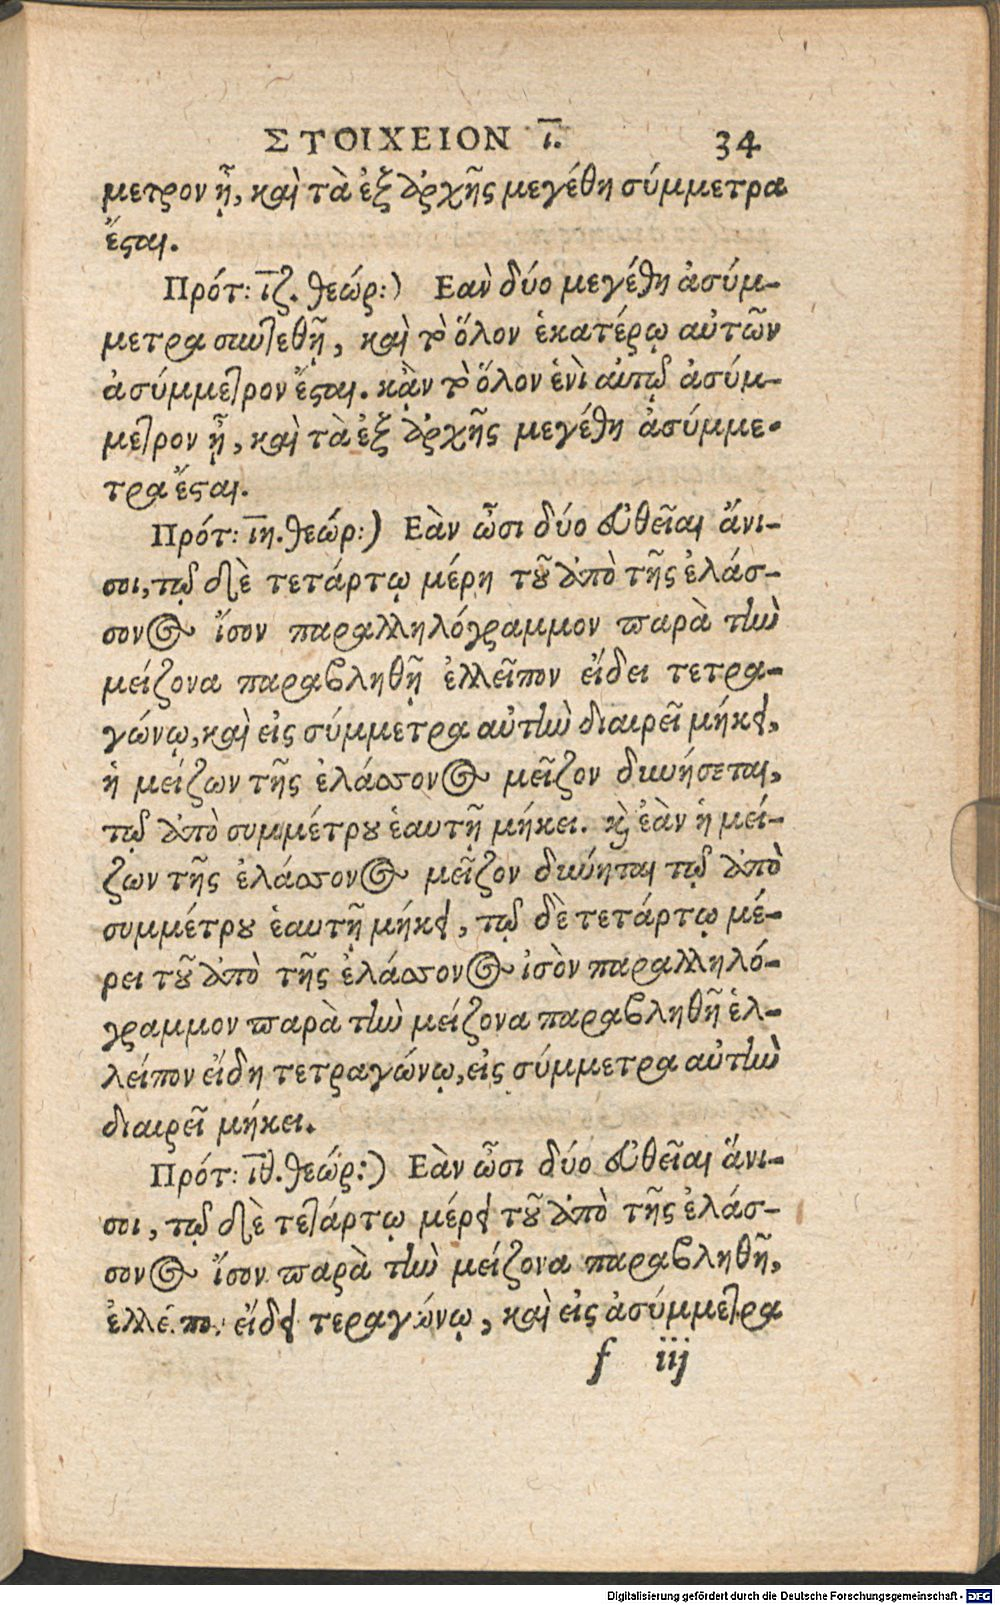 ΣΤΟΙΧΕΙΟΝ ι̅. 34
μετρον ᾖ, καὶ τὰ ἐξ ἀρχῆς μεγέθη σύμμετρα
ἔσται.
Πρότ: ι̅ζ. θεώρ:) Εαὶν δύο μεγέθη ἀσύμ-
μετρα συντεθῇ, καὶ τὸ ὅλον ἑκατέρῳ αὐτῶν
ἀσύμμετρον ἔσται. κᾂν τὸ ὅλον ἑνὶ αὐτῷ ἀσύμ-
μετρον ᾖ, καὶ τὰ ἐξ ἀρχῆς μεγέθη ἀσύμμε-
τρα ἔσται.
Πρότ: ι̅η. θεώρ:) Εὰν ὦσι δύο εὐθεῖαι ἄνι-
σοι, τῷ δὲ τετάρτῳ μέρη τοῦ ἀπὸ τῆς ἐλάσ-
σονος ἴσον παραλληλόγραμμον παρὰ τὴν
μείζονα παραβληθῇ ἐλλεῖπον εἴδει τετρα-
γώνῳ, καὶ εἰς σύμμετρα αὐτὴν διαιρεῖ μήκει,
ἡ μείζων τῆς ἐλάσσονος μεῖζον δυνήσεται,
τῷ ἀπὸ συμμέτρου ἑαυτῇ μήκει. καὶ ἐὰν ἡ μεί-
ζων τῆς ἐλάσσονος μεῖζον δύνηται τῷ ἀπὸ
συμμέτρου ἑαυτῇ μήκει, τῷ δὲ τετάρτῳ μέ-
ρει τοῦ ἀπὸ τῆς ἐλάσσονος ἰσὸν παραλληλό-
γραμμον παρὰ τὴν μείζονα παραβληθῇ ἐλ-
λείπον εἴδη τετραγώνῳ, εἰς σύμμετρα αὐτὴν
διαιρεῖ μήκει.
Πρότ: ι̅θ. θεώρ:) Εὰν ὦσι δύο εὐθεῖαι ἄνι-
σοι, τῷ δὲ τετάρτῳ μέρει τοῦ ἀπὸ τῆς ἐλάσ-
σονος ἴσον παρὰ τὴν μείζονα παραβληθῇ,
εἴδει τεραγώνῳ, καὶ εἰς ἀσύμμετρα
f iij
Digitalisierung gefördert durch die Deutsche Forschungsgemeinschaft - DFG